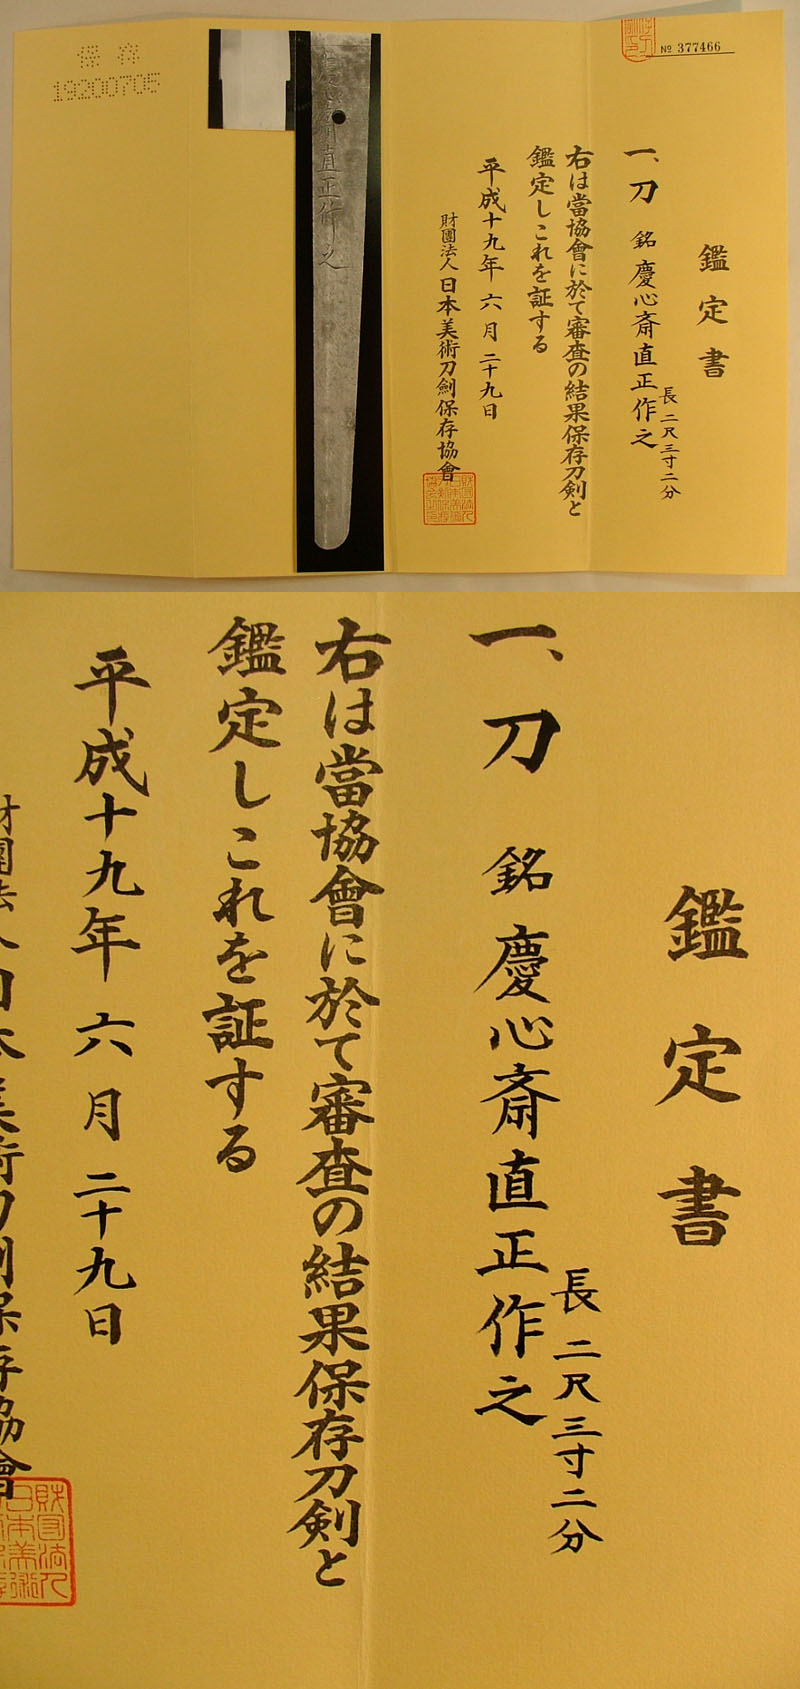 保存
19200705
№ 377466
鑑定書
一、刀 銘 慶心斎直正作之
長二尺三寸二分
右は當協會に於て審査の結果保存刀剣と
鑑定しこれを証する
平成十九年六月二十九日
財團法人日本美術刀劍保存協會
慶心斎直正作之
鑑定書
一、刀 銘 慶心斎直正作之
長二尺三寸二分
右は當協會に於て審査の結果保存刀剣と
鑑定しこれを証する
平成十九年六月二十九日
財團法人日本美術刀劍保存協會